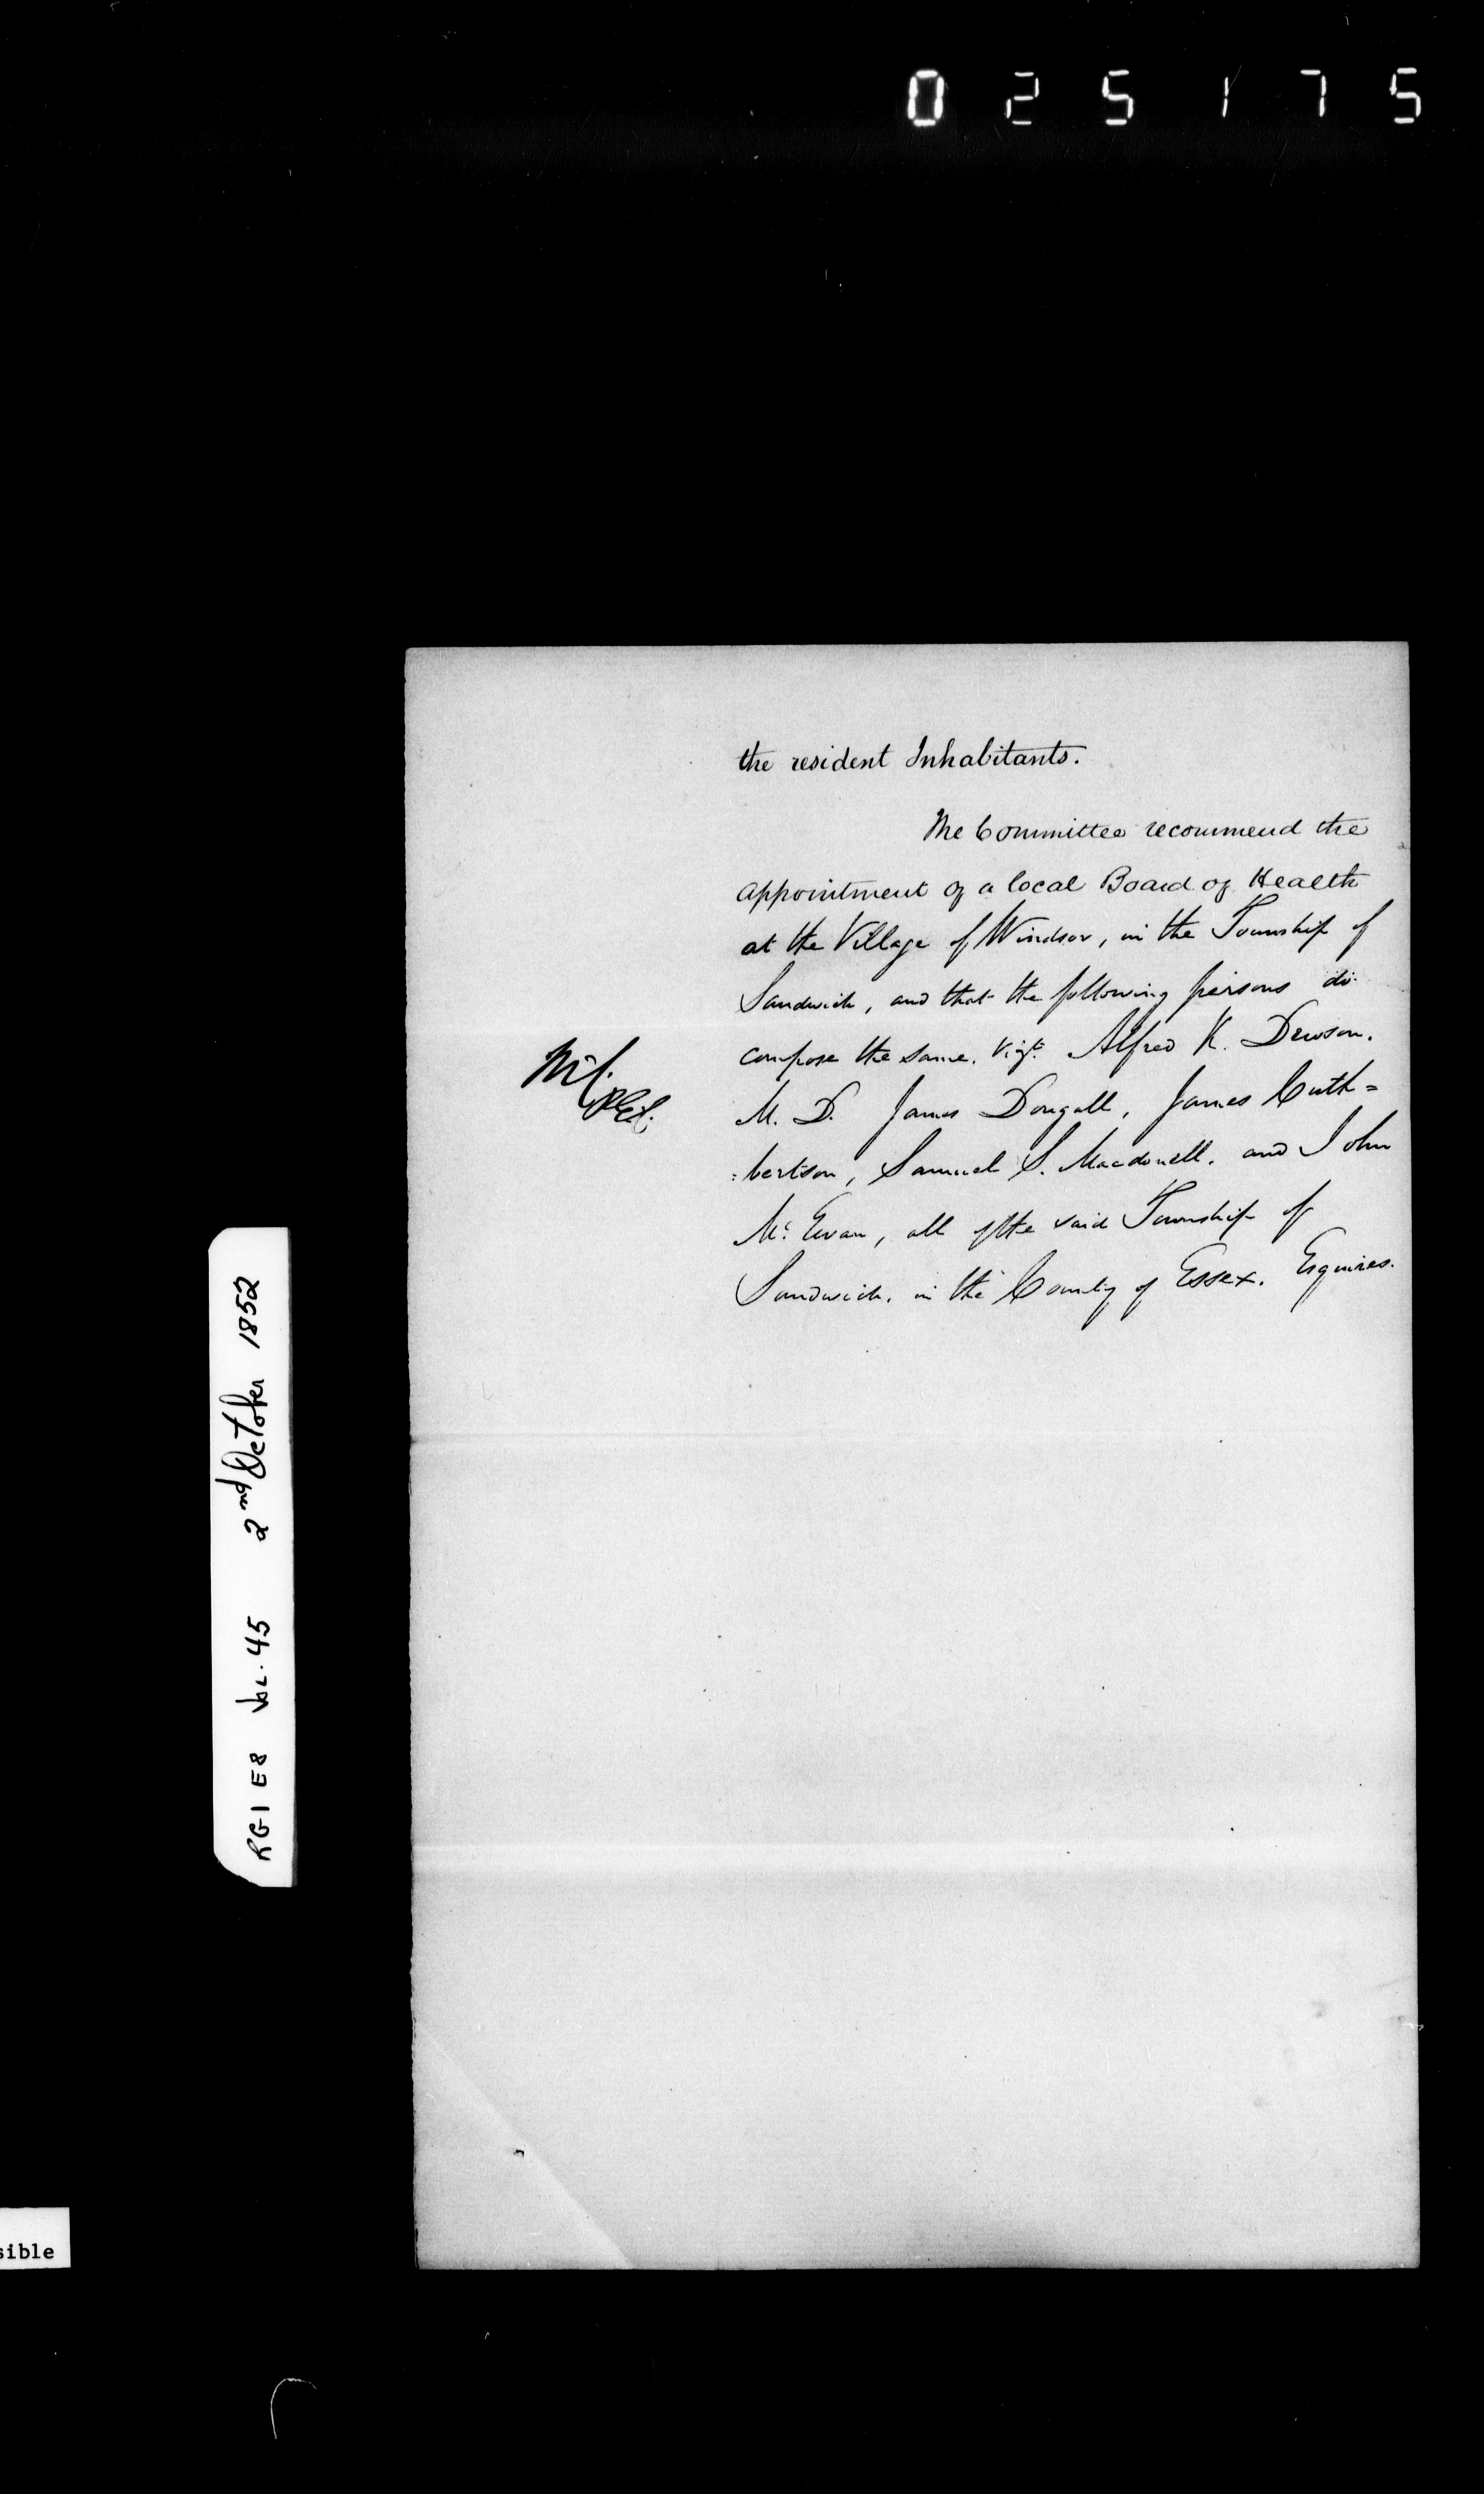 025175
the resident Inhabitants.
The Committee recommend the
appointment of a local Board of Health
at the Village of Windsor, in the Township of
Sandwich, and that the following persons do
compose the same. Vizt. Alfred K. Dewson.
M. D. James Dougall, James Cuth=
=bertson, Samuel S. Macdonell, and John
Mc. Ewan, all of the said Township of
Sandwich, in the County of Essex. Esquires.
RG1 E8 VOL. 45 2nd October 1852
sible